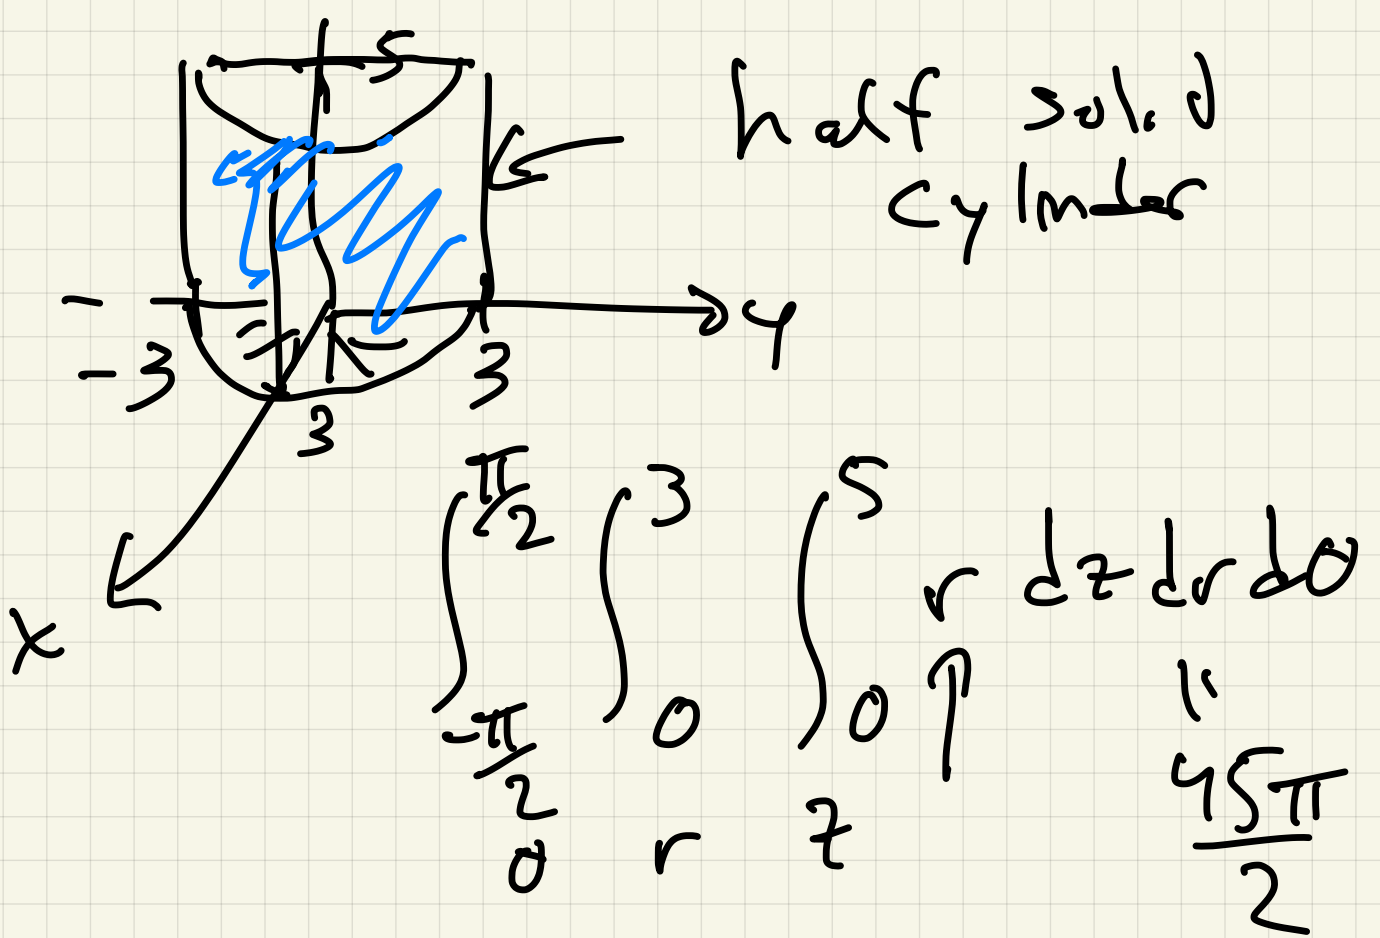 5
half solid
cylinder
- 3
3
3
y
x
∫_{-π/2}^{π/2} ∫_0^3 ∫_0^5 r dz dr dθ
θ r z
"
45π/2